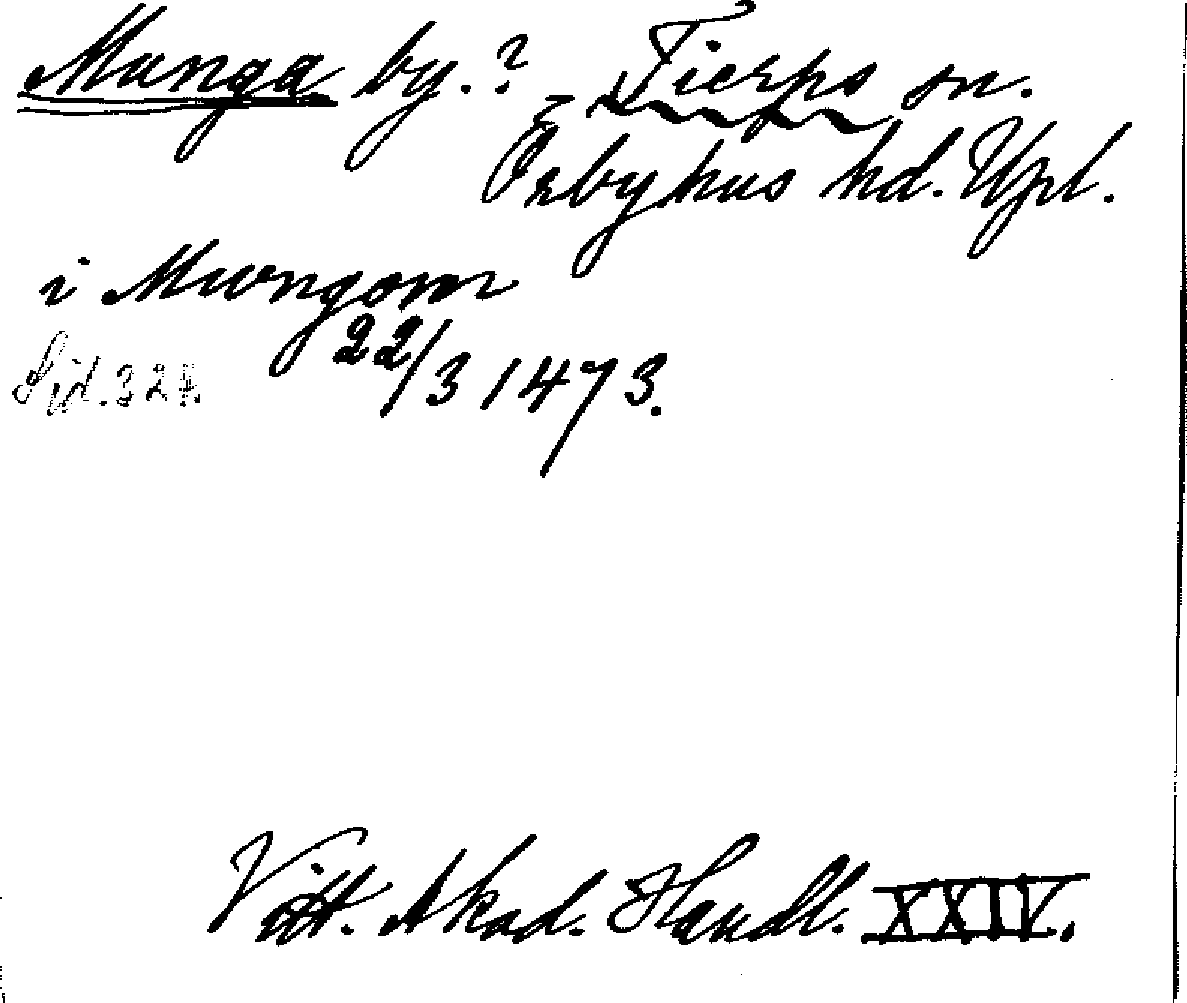 Munga by.? Tierps sn.
Örbyhus hd. Upl.
i Mwngom
22/3 1473.
Sid. 324.
Vitt. Akad. Handl. XXIV.